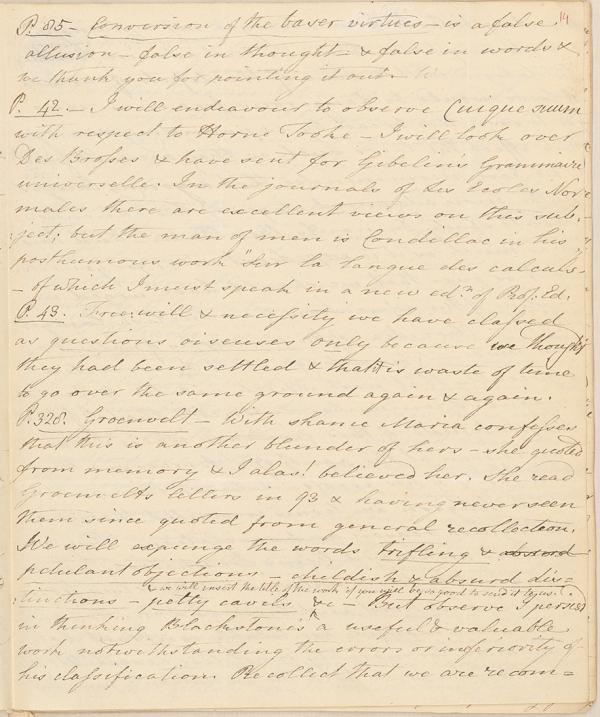 14
P. 85 – Conversion of the baser virtues – is a false
allusion – false in thought & false in words &
we thank you for pointing it out. –
P. 42. – I will endeavour to observe Cuique suum
with respect to Horne Tooke – I will look over
Des Brosses & have sent for Gibelin's Grammaire
universelle. In the journals of Les Ecoles Nor
males there are excellent views on this sub-
ject, but the man of men is Condillac in his
posthumous work "Sur la langue des calculs"
– of which I must speak in a new edn. of Prof. Ed.
P. 43. Free will & necessity we have classed
as questions oiseuses only because we thought
they had been settled & that it is waste of time
to go over the same ground again & again.
P. 328. Groenvelt – With shame Maria confesses
that this is another blunder of hers – she quoted
from memory & I alas! believed her. She read
Groenvelts letters in 93 & having never seen
them since quoted from general recollection.
We will expunge the words trifling & absurd
petulant objections – childish & absurd disc
& we will insert the title of the work if you will be so good to send it to us.
tinctions – petty cavils &c – But observe I persist
in thinking Blackstone's a useful & valuable
work notwithstanding the errors or inferiority of
his classification. Recollect that we are recom=